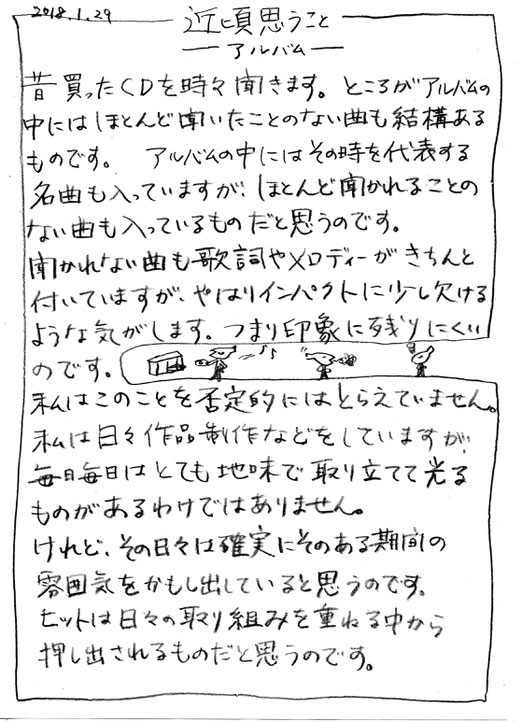 2018.1.29
近頃思うこと
―アルバム―
昔買ったCDを時々聞きます。ところがアルバムの
中にはほとんど聞いたことのない曲も結構ある
ものです。 アルバムの中にはその時を代表する
名曲も入っていますが、ほとんど聞かれることの
ない曲も入っているものだと思うのです。
聞かれない曲も歌詞やメロディーがきちんと
付いていますが、やはりインパクトに少し欠ける
ような気がします。つまり印象に残りにくい
のです。
私はこのことを否定的にはとらえていません。
私は日々作品制作などをしていますが
毎日毎日はとても地味で取り立てて光る
ものがあるわけではありません。
けれど、その日々は確実にそのある期間の
雰囲気をかもし出していると思うのです。
ヒットは日々の取り組みを重ねる中から
押し出されるものだと思うのです。